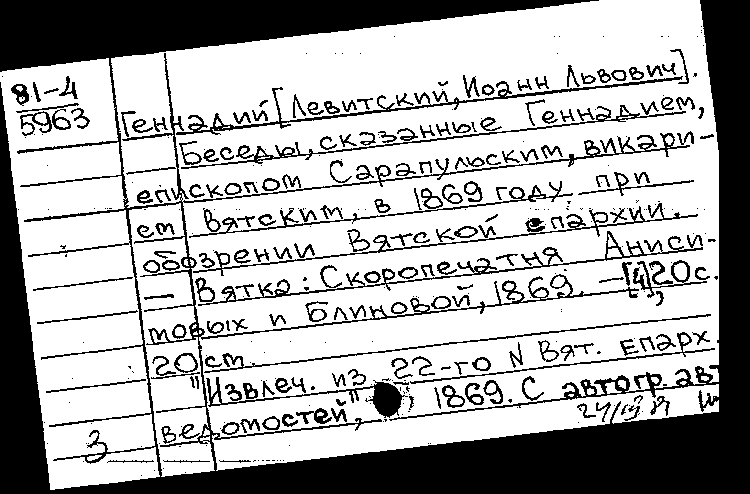 81-4
5963
Геннадий [Левитский, Иоанн Львович].
Беседы, сказанные Геннадием,
епископом Сарапульским, викари-
ем Вятским, в 1869 году при
обозрении Вятской епархии.
— Вятка: Скоропечатня Аниси-
мовых и Блиновой, 1869. – [4], 20 с.
20 см.
"Извлеч. из 22-го N Вят. епарх.
ведомостей", 1869. С автогр. авт
3